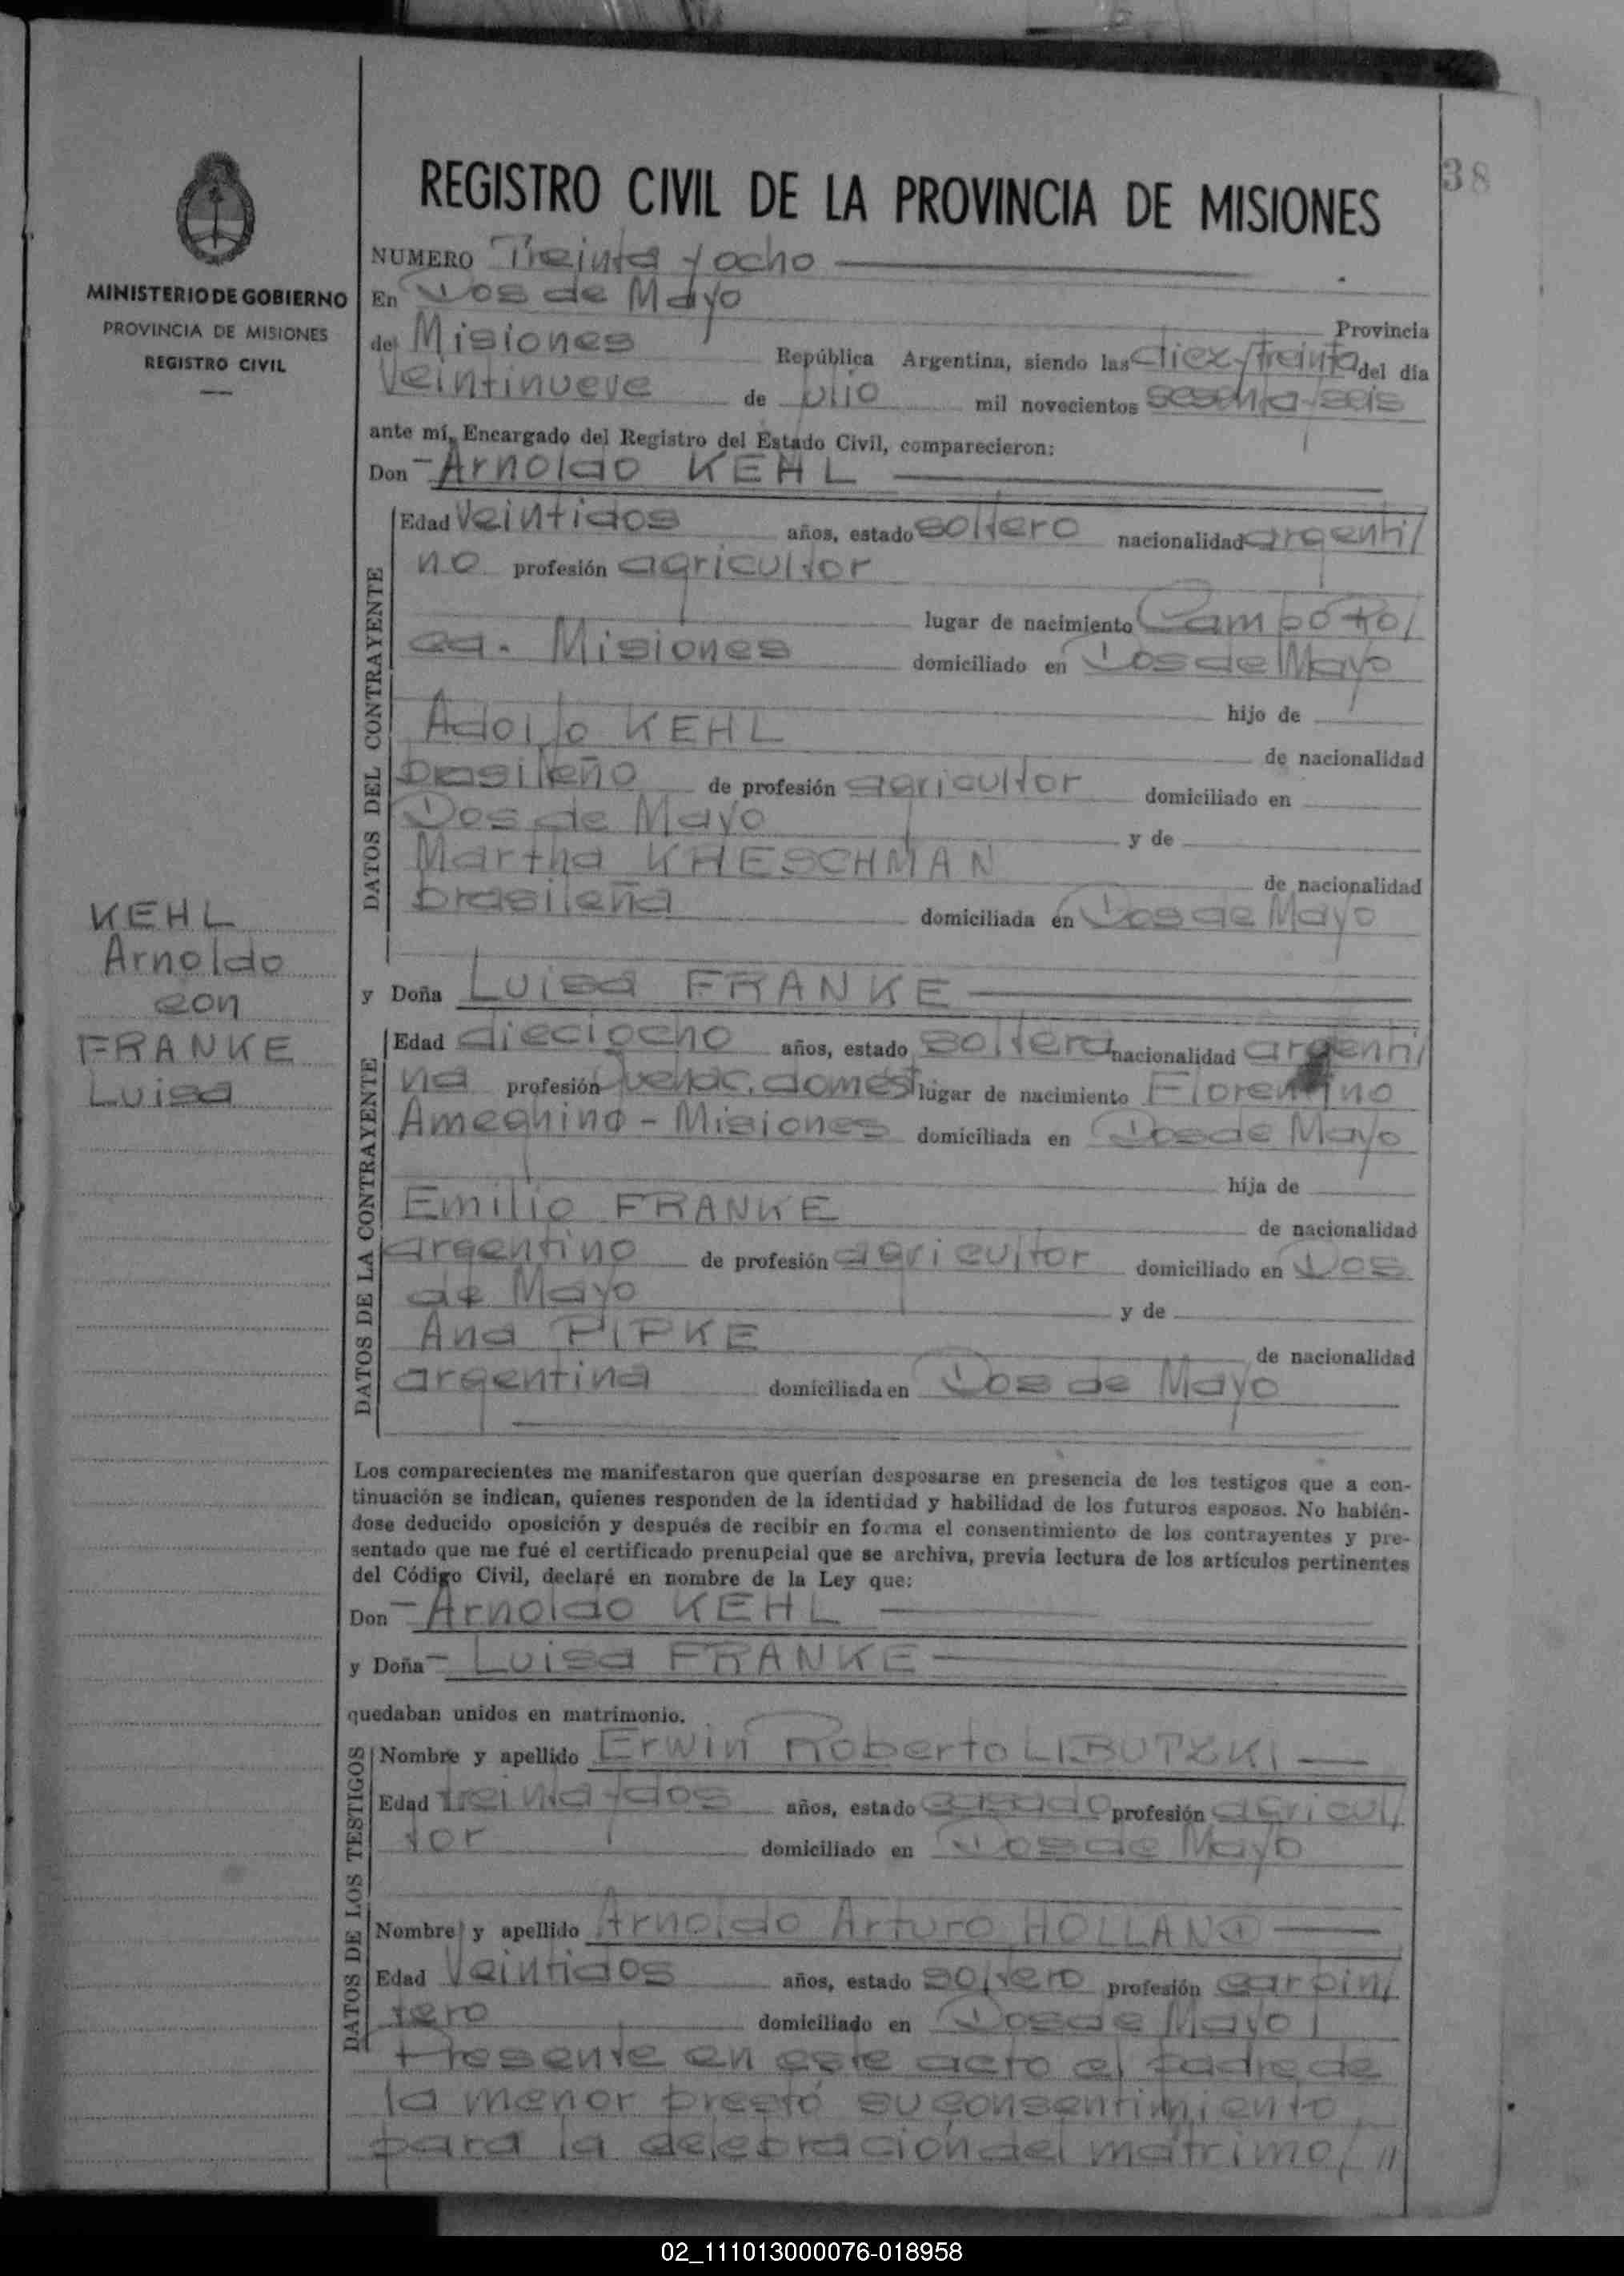 38
REGISTRO CIVIL DE LA PROVINCIA DE MISIONES
MINISTERIO DE GOBIERNO
PROVINCIA DE MISIONES
REGISTRO CIVIL
NUMERO Treinta y ocho
En Dos de Mayo
Provincia
de Misiones República Argentina, siendo las diez y treinta del día
Veintinueve de julio mil novecientos sesenta y seis
ante mí, Encargado del Registro del Estado Civil, comparecieron:
Don Arnoldo KEHL
DATOS DEL CONTRAYENTE
Edad veintidos años, estado soltero nacionalidad argenti/
no profesión agricultor
lugar de nacimiento Campó Ro/
ca. Misiones domiciliado en Dos de Mayo
hijo de
Adolfo KEHL
de nacionalidad
brasileño de profesión agricultor domiciliado en
Dos de Mayo
y de
Martha KHESCHMAN
de nacionalidad
brasileña domiciliada en Dos de Mayo
KEHL
Arnoldo
con
FRANKE
Luisa
y Doña Luisa FRANKE
DATOS DE LA CONTRAYENTE
Edad dieciocho años, estado soltera nacionalidad argenti/
na profesión Quehac. domést lugar de nacimiento Florentino
Ameghino - Misiones domiciliada en Dos de Mayo
hija de
Emilio FRANKE
de nacionalidad
argentino de profesión agricultor domiciliado en Dos
de Mayo
y de
Ana PIPKE
de nacionalidad
argentina domiciliada en Dos de Mayo
Los comparecientes me manifestaron que querían desposarse en presencia de los testigos que a con-
tinuación se indican, quienes responden de la identidad y habilidad de los futuros esposos. No habién-
dose deducido oposición y después de recibir en forma el consentimiento de los contrayentes y pre-
sentado que me fué el certificado prenupcial que se archiva, previa lectura de los artículos pertinentes
del Código Civil, declaré en nombre de la Ley que:
Don Arnoldo KEHL
y Doña Luisa FRANKE
quedaban unidos en matrimonio.
DATOS DE LOS TESTIGOS
Nombre y apellido Erwin Roberto LIBUTZKI
Edad treinta y dos años, estado casado profesión agricul/
tor domiciliado en Dos de Mayo
Nombre y apellido Arnoldo Arturo HOLLAND
Edad Veintidos años, estado soltero profesión carpin/
tero domiciliado en Dos de Mayo
Presente en este acto el padre de
la menor prestó su consentimiento
para la celebración del matrimo/ //
02_111013000076-018958